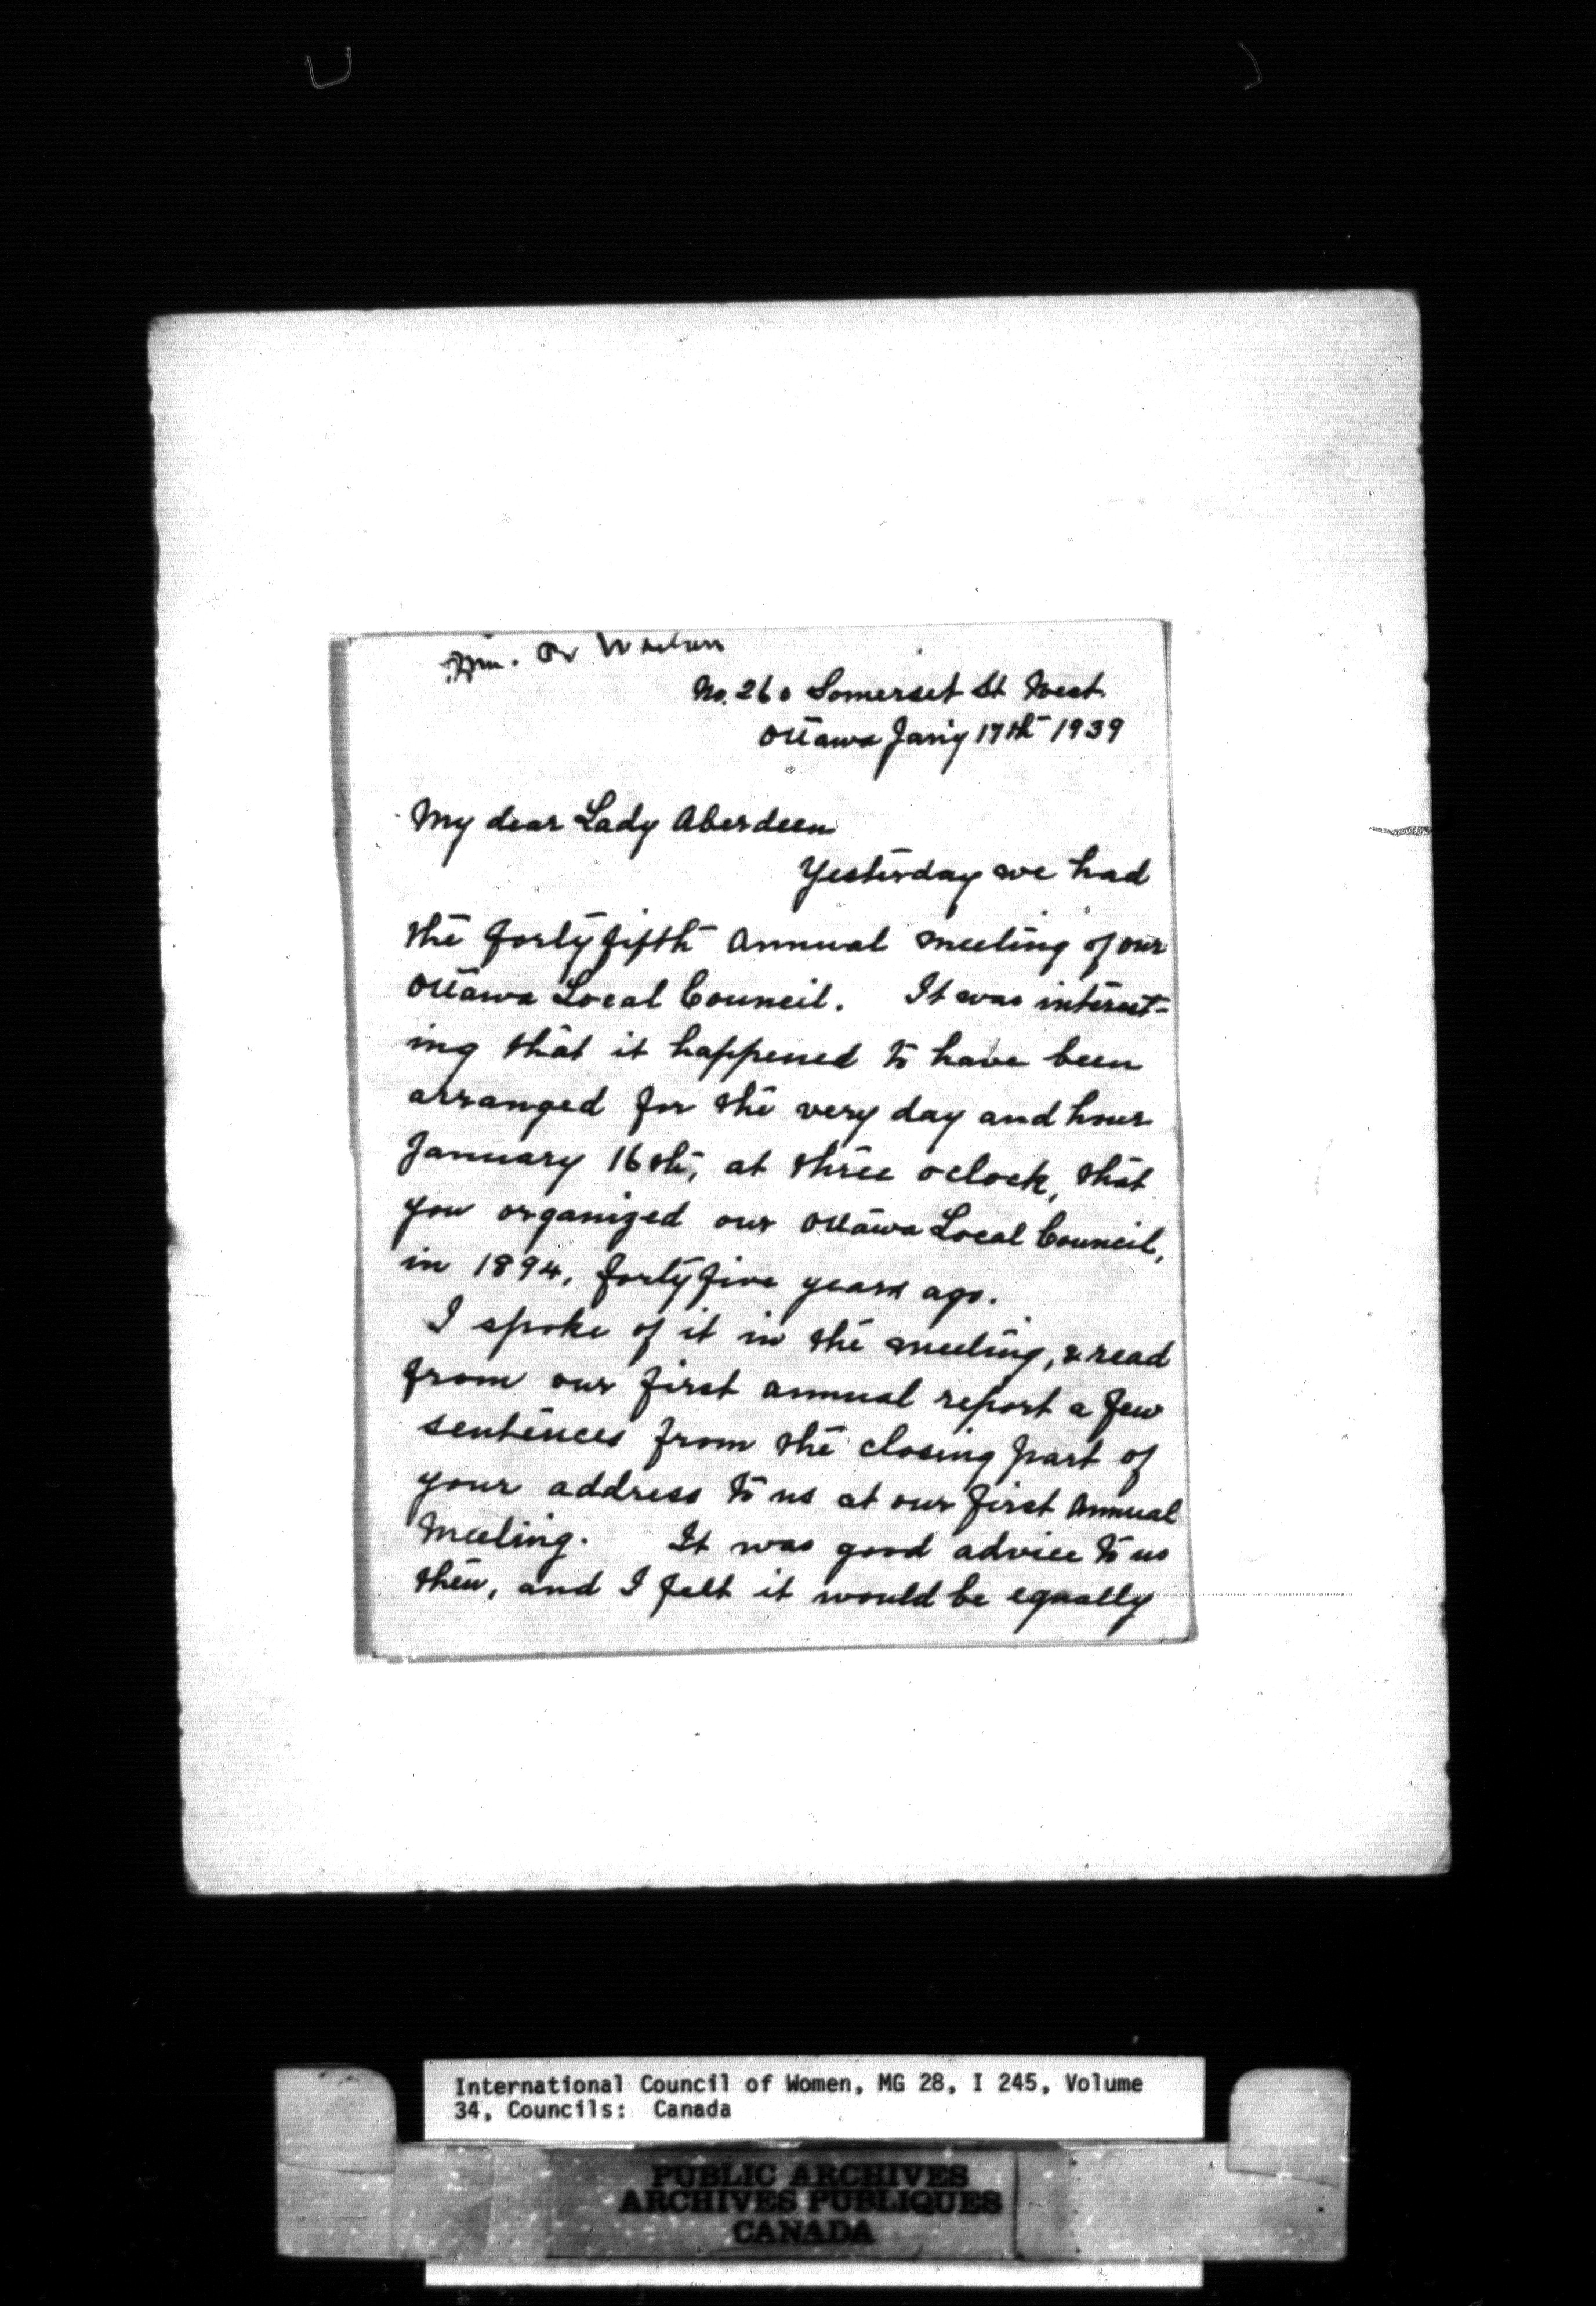 No. 260 Somerset St West
Ottawa Jan'y 17th 1939
My dear Lady Aberdeen
Yesterday we had
the forty fifth Annual Meeting of our
Ottawa Local Council. It was interest-
ing that it happened to have been
arranged for the very day and hour
January 16th, at three oclock, that
you organized our Ottawa Local Council,
in 1894, forty five years ago.
I spoke of it in the meeting, & read
from our first annual report a few
sentences from the closing part of
your address to us at our first Annual
Meeting. It was good advice to us
then, and I felt it would be equally
International Council of Women, MG 28, I 245, Volume
34, Councils: Canada
PUBLIC ARCHIVES
ARCHIVES PUBLIQUES
CANADA